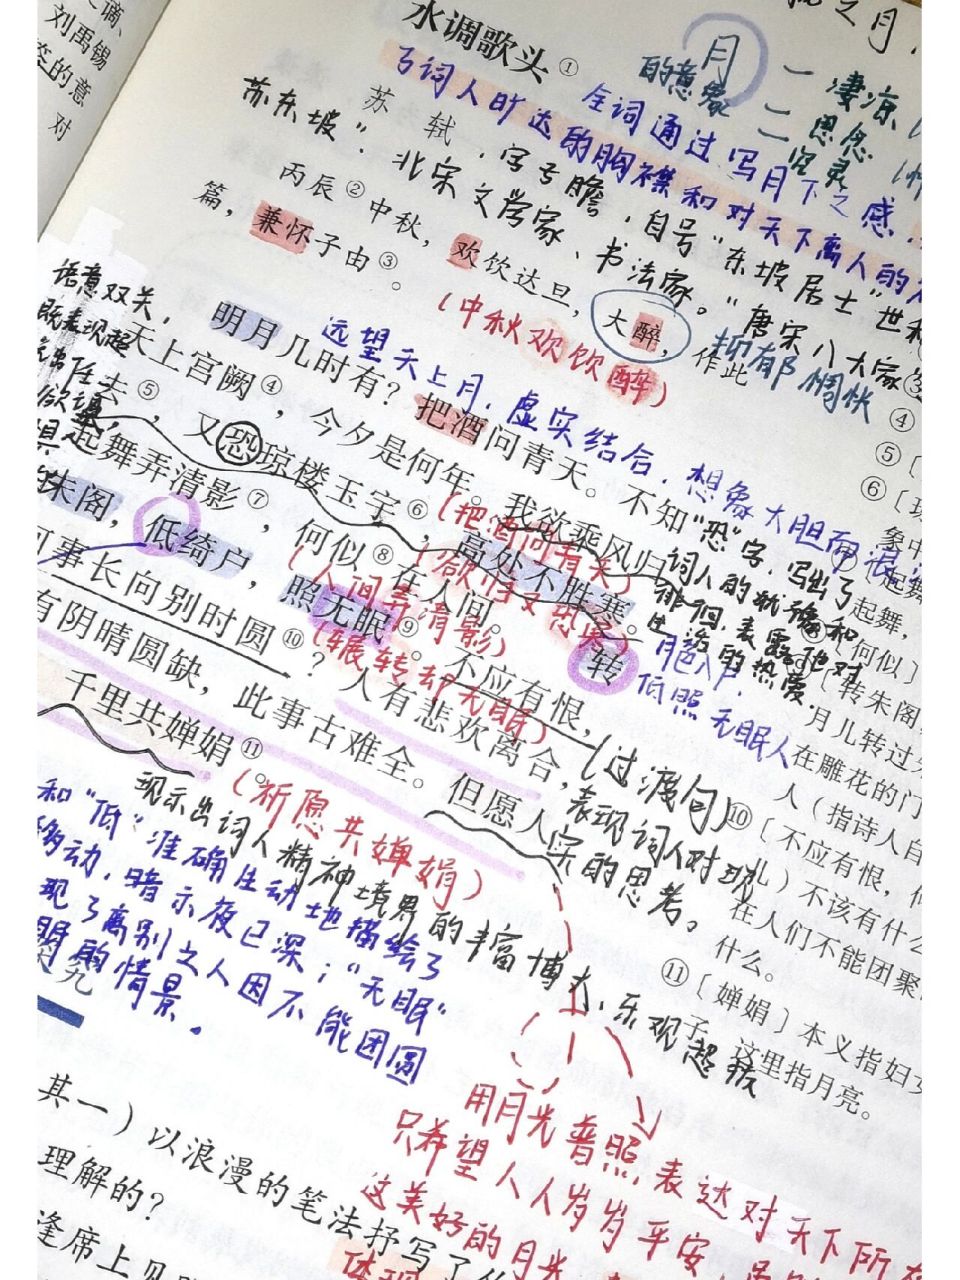 谪、
刘禹锡
态的意
对
水调歌头①
月
的意象
一 凄凉
二 思念
全词通过写月下之感，
了词人旷达的胸襟和对天下离人的
苏轼，字子瞻，自号“东坡居士”世称
苏东坡”，北宋文学家、书法家。“唐宋八大家
丙辰②中秋，欢饮达旦，大醉，作此
篇，兼怀子由③。
(中秋欢饮醉)
抑郁 惆怅
语意双关，
既表现超
明月几时有？把酒问青天。不知
远望天上月，虚实结合，想象大胆
天上宫阙④，今夕是何年。我欲乘风归
去⑤，又恐琼楼玉宇⑥，高处不胜寒。
(把酒问青天)
(欲归又恐寒)
“恐”字，写出了
词人的犹豫和
徘徊，表露他对
生活的热爱
起舞弄清影⑦，何似⑧在人间。
(人间弄清影)
转
朱阁，低绮户，照无眠⑨。不应有恨，
(辗转却无眠)
月色入户，
低照无眠人
事长向别时圆⑩？人有悲欢离合，
(过渡句)
表现词人对现
实的思考。
有阴晴圆缺，此事古难全。但愿人
千里共婵娟⑪。
(祈愿共婵娟)
现示出词人精神境界的丰富博大，乐观超拔
和“低”准确生动地描绘了
移动，暗示夜已深；“无眠”
现了离别之人因不能团圆
眠的情景。
究
用月光普照，表达对天下所有
只希望人人岁岁平安，
这美好的月光
体现
其一）以浪漫的笔法抒写了
理解的？
逢席上见
③
④
⑤〔
⑥〔
象中
起舞
起舞，
〔何似〕
〔转朱阁，
月儿转过
在雕花的门
人（指诗人自
⑩〔不应有恨，何
）不该有什么
在人们不能团聚
什么。
⑪〔婵娟〕本义指妇女
子，这里指月亮。